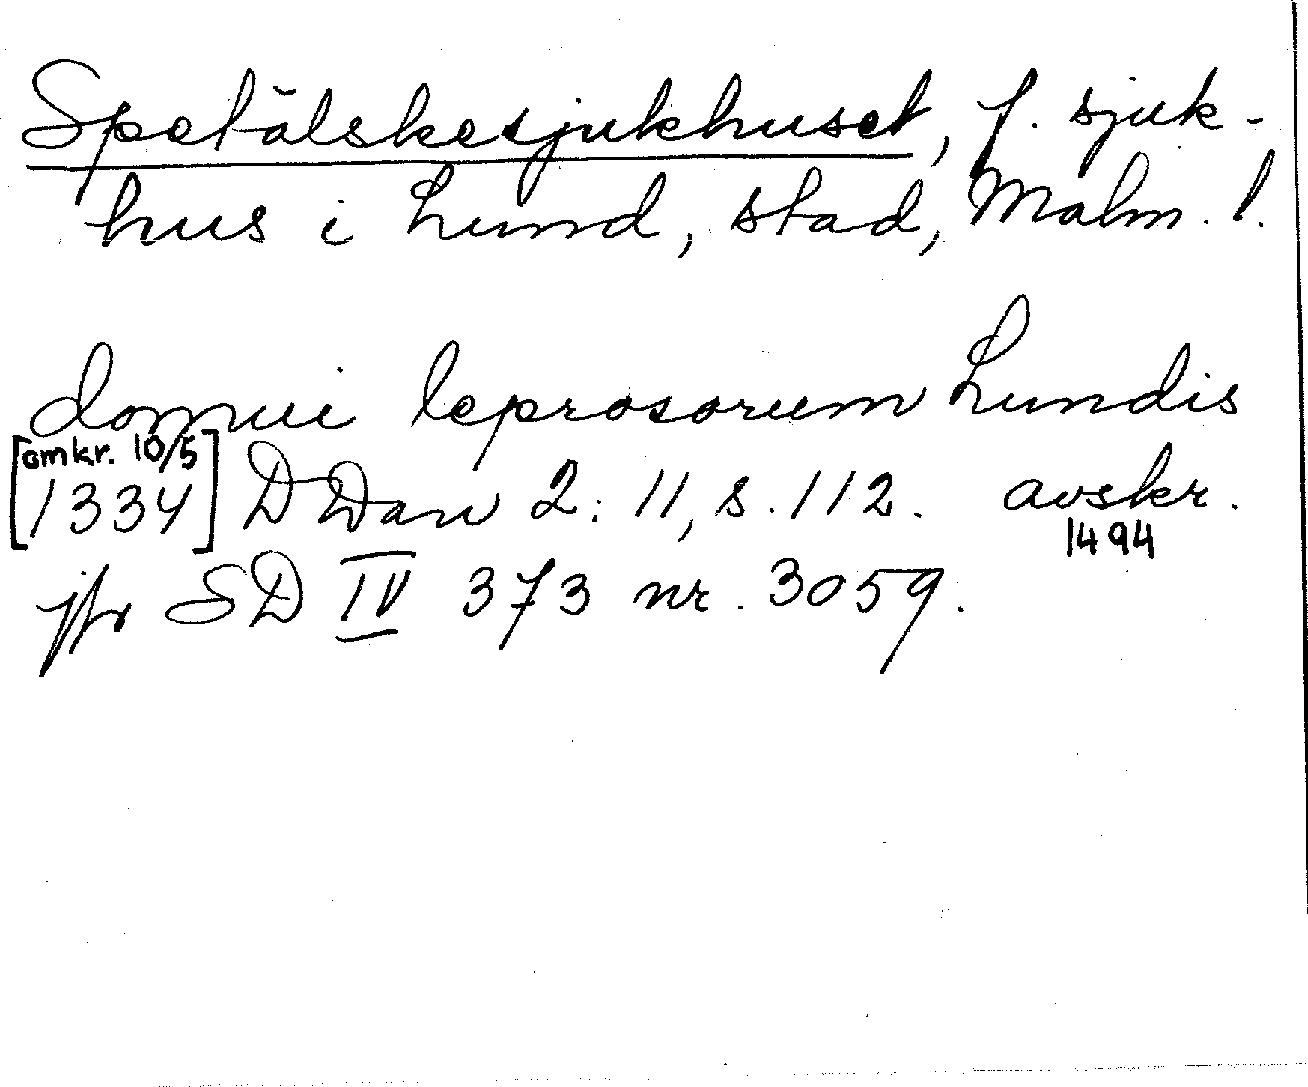 Spetälskesjukhuset, f. sjuk-
hus i Lund, stad, Malm. l.
domui leprosorum Lundis
[omkr. 10/5
1334] DDan 2: 11, s. 112. avskr.
1494
jfr SD IV 373 nr. 3059.